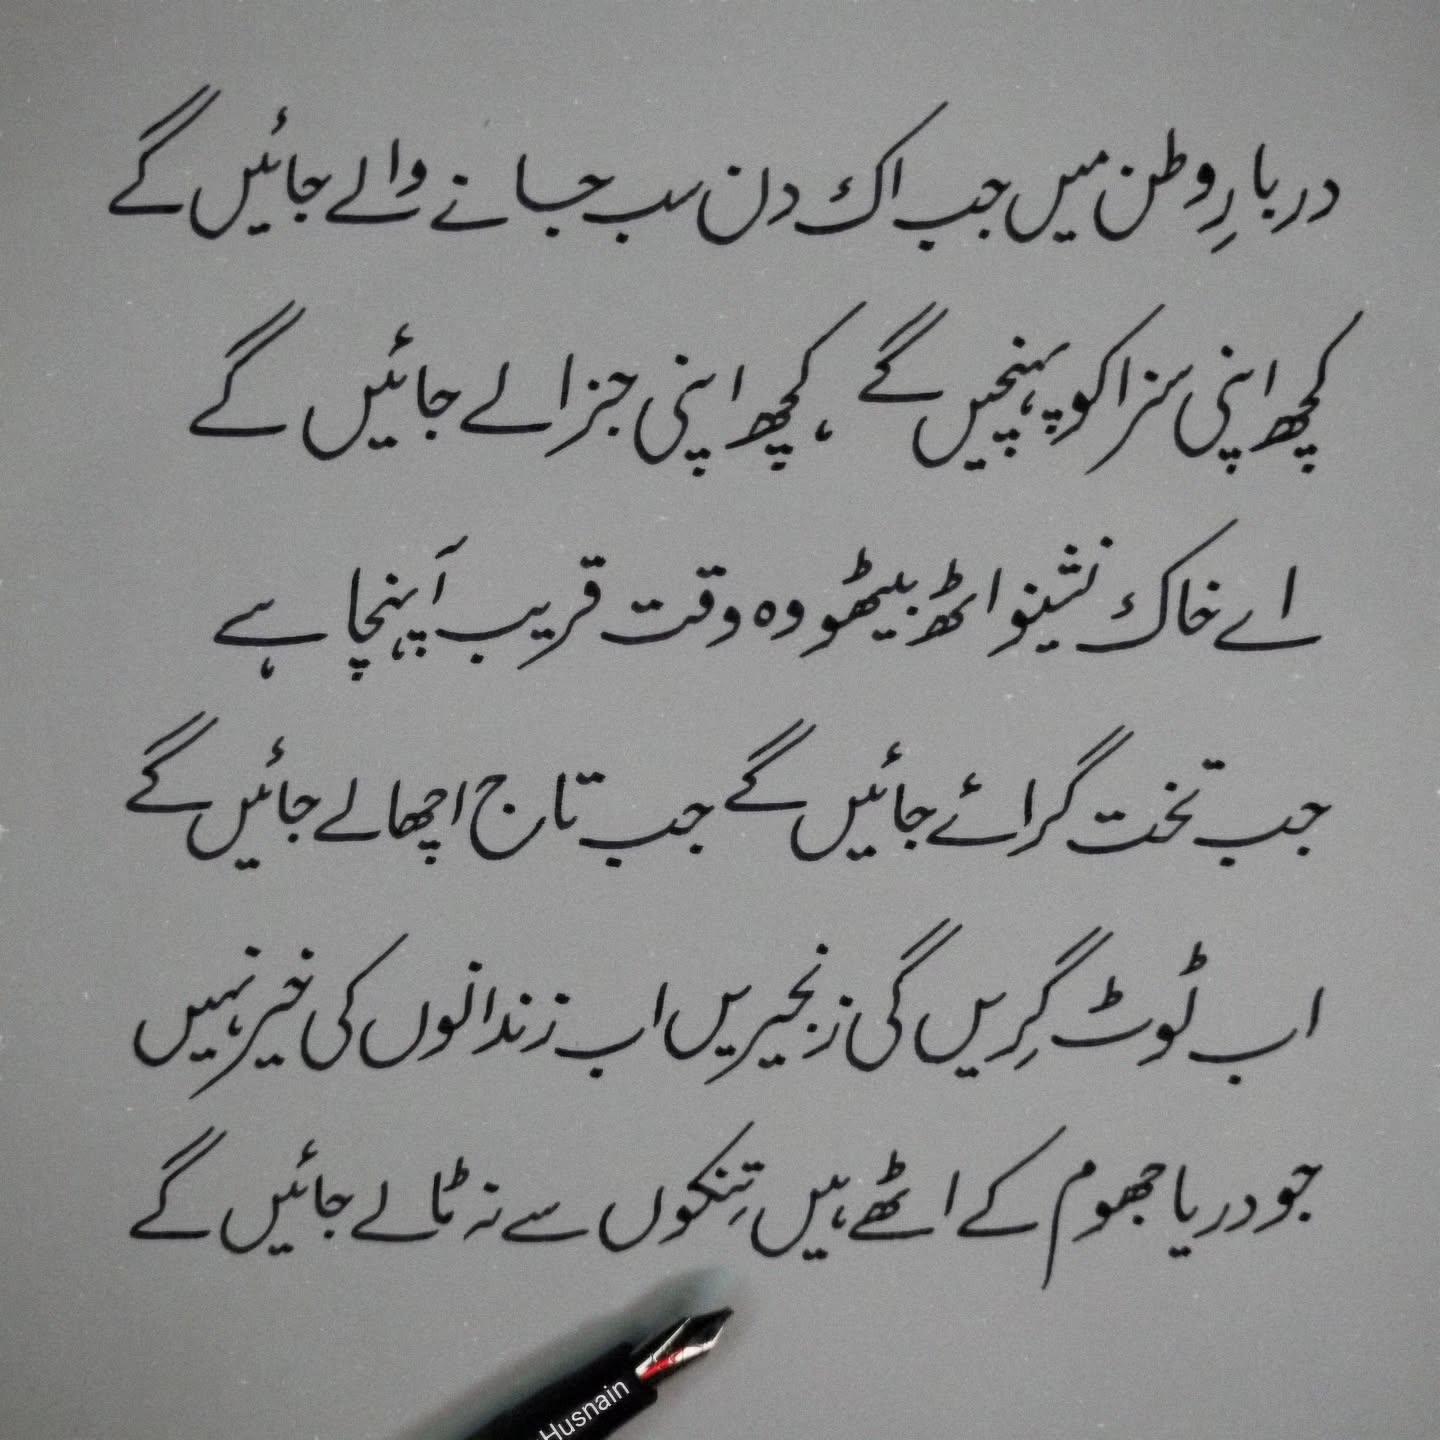 دربارِ وطن میں جب اک دن سب جانے والے جائیں گے
کچھ اپنی سزا کو پہنچیں گے ، کچھ اپنی جزا لے جائیں گے
اے خاک نشینو اٹھ بیٹھو وہ وقت قریب آپہنچا ہے
جب تخت گرائے جائیں گے جب تاج اچھالے جائیں گے
اب ٹوٹ گِریں گی زنجیریں اب زندانوں کی خیر نہیں
جو دریا جھوم کے اٹھے ہیں تِنکوں سے نہ ٹالے جائیں گے
Husnain